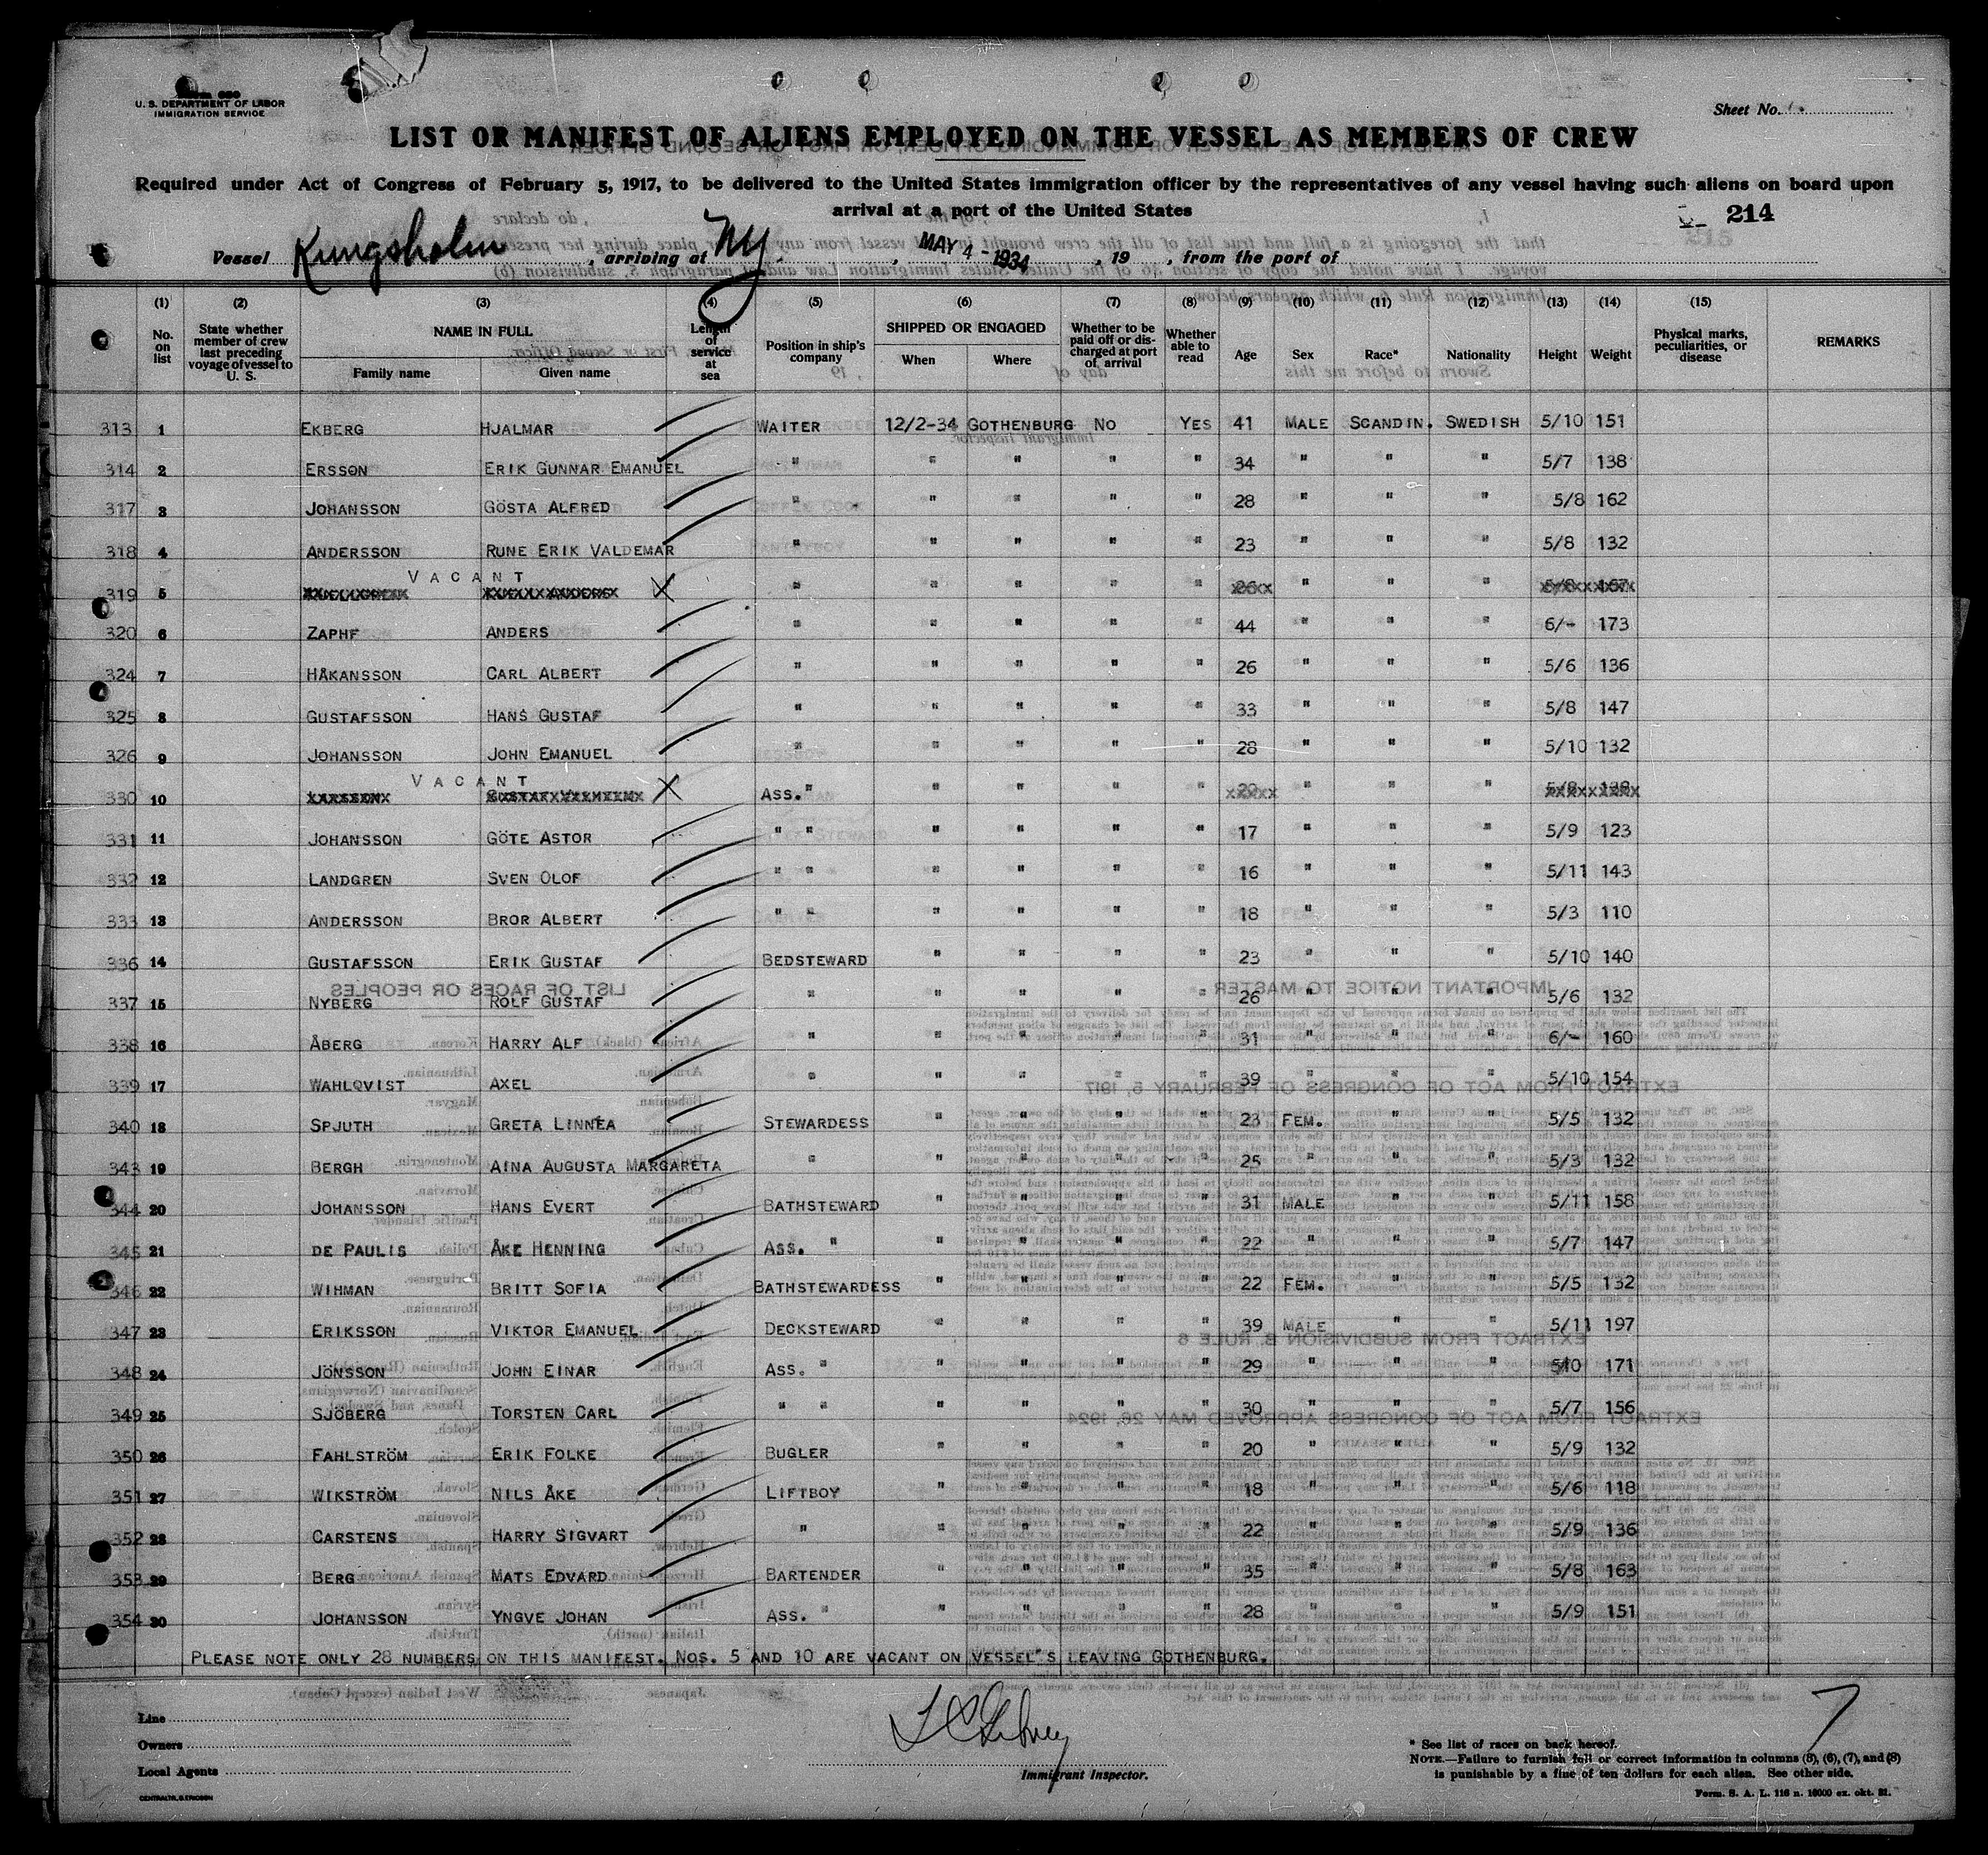 Form 680
U. S. DEPARTMENT OF LABOR
IMMIGRATION SERVICE
Sheet No.
LIST OR MANIFEST OF ALIENS EMPLOYED ON THE VESSEL AS MEMBERS OF CREW
Required under Act of Congress of February 5, 1917, to be delivered to the United States immigration officer by the representatives of any vessel having such aliens on board upon
arrival at a port of the United States
214
Vessel Kungsholm, arriving at NY, MAY 4 - 1934, 19 , from the port of
(1) (2) (3) (4) (5) (6) (7) (8) (9) (10) (11) (12) (13) (14) (15)
No. on list State whether member of crew last preceding voyage of vessel to U. S. NAME IN FULL Family name Given name Length of service at sea Position in ship's company SHIPPED OR ENGAGED When Where Whether to be paid off or discharged at port of arrival Whether able to read Age Sex Race* Nationality Height Weight Physical marks, peculiarities, or disease REMARKS
313 1 EKBERG HJALMAR WAITER 12/2-34 GOTHENBURG NO YES 41 MALE SCANDIN. SWEDISH 5/10 151
314 2 ERSSON ERIK GUNNAR EMANUEL " " " " " 34 " " " 5/7 138
317 3 JOHANSSON GÖSTA ALFRED " " " " " 28 " " " 5/8 162
318 4 ANDERSSON RUNE ERIK VALDEMAR " " " " " 23 " " " 5/8 132
319 5 VACANT X " " " " " " " "
320 6 ZAPHF ANDERS " " " " " 44 " " " 6/- 173
324 7 HÅKANSSON CARL ALBERT " " " " " 26 " " " 5/6 136
325 8 GUSTAFSSON HANS GUSTAF " " " " " 33 " " " 5/8 147
326 9 JOHANSSON JOHN EMANUEL " " " " " 28 " " " 5/10 132
330 10 VACANT X ASS. " " " " " " " "
331 11 JOHANSSON GÖTE ASTOR " " " " " " 17 " " " 5/9 123
332 12 LANDGREN SVEN OLOF " " " " " " 16 " " " 5/11 143
333 13 ANDERSSON BROR ALBERT " " " " " " 18 " " " 5/3 110
336 14 GUSTAFSSON ERIK GUSTAF BEDSTEWARD " " " " 23 " " " 5/10 140
337 15 NYBERG ROLF GUSTAF " " " " " 26 " " " 5/6 132
338 16 ÅBERG HARRY ALF " " " " " 31 " " " 6/- 160
339 17 WAHLQVIST AXEL " " " " " 39 " " " 5/10 154
340 18 SPJUTH GRETA LINNÉA STEWARDESS " " " " 23 FEM. " " 5/5 132
343 19 BERGH AINA AUGUSTA MARGARETA " " " " " 25 " " " 5/3 132
344 20 JOHANSSON HANS EVERT BATHSTEWARD " " " " 31 MALE " " 5/11 158
345 21 DE PAULIS ÅKE HENNING ASS. " " " " " 22 " " " 5/7 147
346 22 WIHMAN BRITT SOFIA BATHSTEWARDESS " " " " 22 FEM. " " 5/5 132
347 23 ERIKSSON VIKTOR EMANUEL DECKSTEWARD " " " " 39 MALE " " 5/11 197
348 24 JÖNSSON JOHN EINAR ASS. " " " " " 29 " " " 5/10 171
349 25 SJÖBERG TORSTEN CARL " " " " " " 30 " " " 5/7 156
350 26 FAHLSTRÖM ERIK FOLKE BUGLER " " " " 20 " " " 5/9 132
351 27 WIKSTRÖM NILS ÅKE LIFTBOY " " " " 18 " " " 5/6 118
352 28 CARSTENS HARRY SIGVART " " " " " 22 " " " 5/9 136
353 29 BERG MATS EDVARD BARTENDER " " " " 35 " " " 5/8 163
354 30 JOHANSSON YNGVE JOHAN ASS. " " " " " 28 " " " 5/9 151
PLEASE NOTE ONLY 28 NUMBERS ON THIS MANIFEST. NOS. 5 AND 10 ARE VACANT ON VESSEL"S LEAVING GOTHENBURG.
Line
Owners
Local Agents
Immigrant Inspector.
7
* See list of races on back hereof.
NOTE.—Failure to furnish full or correct information in columns (3), (6), (7), and (8)
is punishable by a fine of ten dollars for each alien. See other side.
CENTRALTR. S. ERICSON
Form. S. A. L. 116 n. 16000 ex. okt. 31.